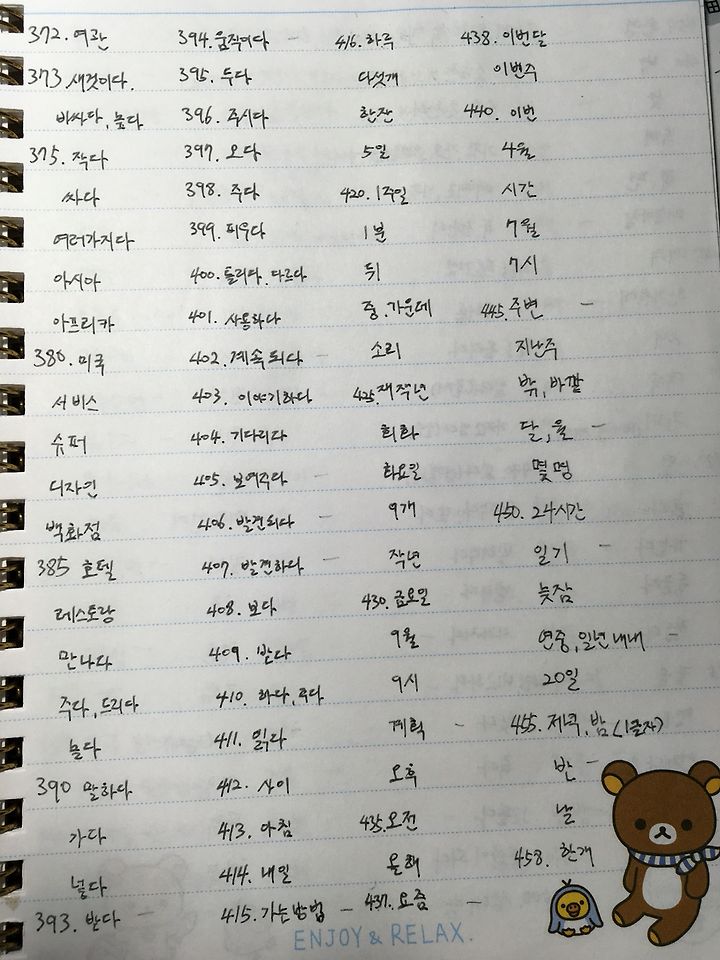 372. 여관
373. 새것이다.
비싸다, 높다
375. 작다
싸다
여러가지다
아시아
아프리카
380. 미국
서비스
슈퍼
디자인
백화점
385 호텔
레스토랑
만나다
주다, 드리다
놀다
390 말하다
가다
넣다
393. 받다 -
394. 움직이다 -
395. 두다
396. 주시다
397. 오다
398. 주다
399. 피우다
400. 틀리다. 다르다
401. 사용하다
402. 계속되다 -
403. 이야기하다
404. 기다리다
405. 보여주다 -
406. 발견되다 -
407. 발견하다 -
408. 보다
409. 받다
410. 하다,
411. 읽다
412. 사이
413. 아침
414. 내일
415. 가는방법 -
416. 하루
다섯개
한잔
5일
420. 1주일
1분
뒤
중. 가운데
소리
425. 재작년
회화
화요일
9개
작년
430. 금요일
9월
9시
계획 -
오후
435. 오전
올해
437. 요즘 -
438. 이번달
이번주
440. 이번
4월
시간
7월
7시
445. 주변 -
지난주
밖, 바깥
달, 월 -
몇명
450. 24시간
일기 -
늦잠
연중, 일년내내 -
20일
455. 저녁, 밤 (1글자)
반 -
날
458. 한개
ENJOY & RELAX.